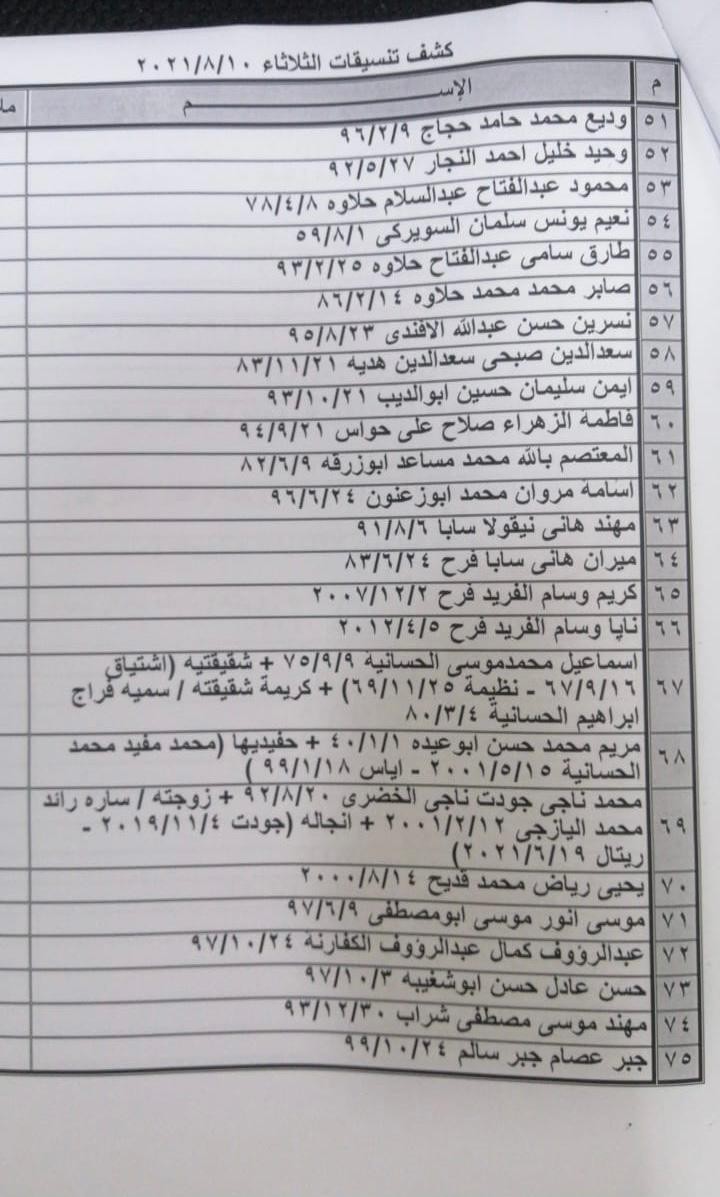 كشف تنسيقات الثلاثاء ٢٠٢١/٨/١٠
م الإســــــم
٥١ وديع محمد حامد حجاج ٩٦/٢/٩
٥٢ وحيد خليل احمد النجار ٩٢/٥/٢٧
٥٣ محمود عبدالفتاح عبدالسلام حلاوه ٧٨/٤/٨
٥٤ نعيم يونس سلمان السويركى ٥٩/٨/١
٥٥ طارق سامى عبدالفتاح حلاوه ٩٣/٢/٢٥
٥٦ صابر محمد محمد حلاوه ٨٦/٢/١٤
٥٧ نسرين حسن عبدالله الافندى ٩٥/٨/٢٣
٥٨ سعدالدين صبحى سعدالدين هديه ٨٣/١١/٢١
٥٩ ايمن سليمان حسين ابوالديب ٩٣/١٠/٢١
٦٠ فاطمة الزهراء صلاح على حواس ٩٤/٩/٢١
٦١ المعتصم بالله محمد مساعد ابوزرقه ٨٢/٦/٩
٦٢ اسامة مروان محمد ابوزعنون ٩٦/٦/٢٤
٦٣ مهند هانى نيقولا سابا ٩١/٨/٦
٦٤ ميران هانى سابا فرح ٨٣/٦/٢٤
٦٥ كريم وسام الفريد فرح ٢٠٠٧/١٢/٢
٦٦ نايا وسام الفريد فرح ٢٠١٢/٤/٥
اسماعيل محمدموسى الحسانية ٧٥/٩/٩ + شقيقتيه (اشتياق
٦٧ ٦٧/٩/١٦ - نظيمة ٦٩/١١/٢٥) + كريمة شقيقته / سميه فراج
ابراهيم الحسانية ٨٠/٣/٤
مريم محمد حسن ابوعيده ٤٠/١/١ + حفيديها (محمد مفيد محمد
٦٨ الحسانية ٢٠٠١/٥/١٥ - اياس ٩٩/١/١٨ )
محمد ناجى جودت ناجى الخضرى ٩٢/٨/٢٠ + زوجته / ساره رائد
٦٩ محمد اليازجى ٢٠٠١/٢/١٢ + انجاله (جودت ٢٠١٩/١١/٤ -
ريتال ٢٠٢١/٦/١٩)
٧٠ يحيى رياض محمد قديح ٢٠٠٠/٨/١٤
٧١ موسى انور موسى ابومصطفى ٩٧/٦/٩
٧٢ عبدالرؤوف كمال عبدالرؤوف الكفارنة ٩٧/١٠/٢٤
٧٣ حسن عادل حسن ابوشغيبه ٩٧/١٠/٣
٧٤ مهند موسى مصطفى شراب ٩٣/١٢/٣٠
٧٥ جبر عصام جبر سالم ٩٩/١٠/٢٤